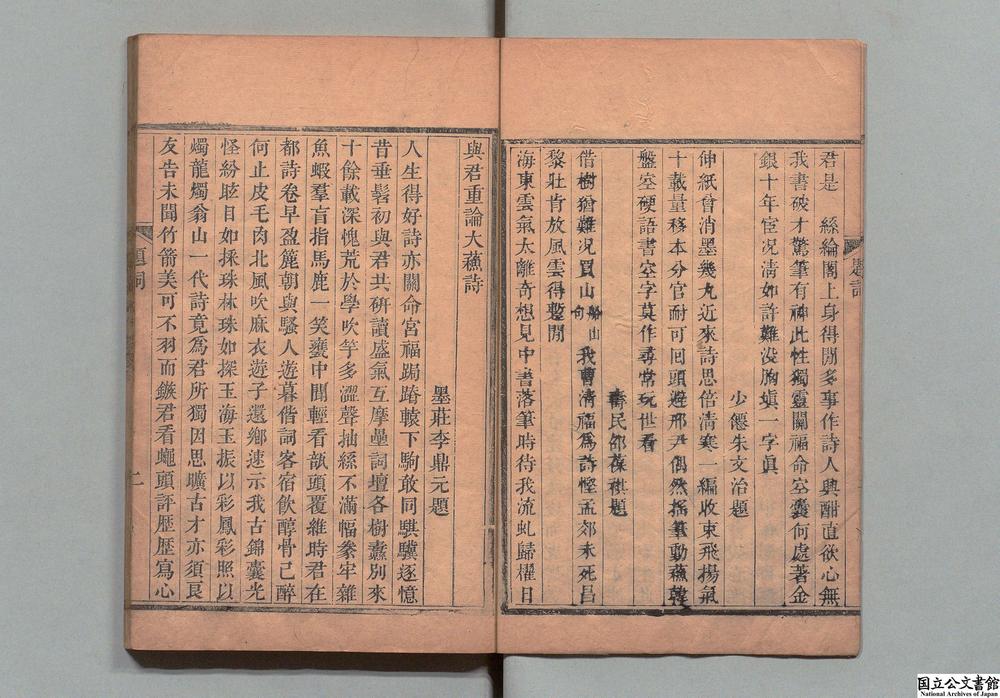 題詞
君是　絲綸閣上身得閒多事作詩人興酣直欲心無
我書破才驚筆有神此性獨靈關福命室囊何處著金
銀十年宦況淸如許難没胸塡一字眞
少僊朱文治題
伸紙曾消墨幾丸近來詩思倍淸寒一編收束飛揚氣
十載量移本分官耐可回頭避邢尹偶然搖筆動蘇韓
盤空硬語書空字莫作尋常玩世看
壽民邵葆祺題
借樹猶難况買山船山句我曹淸福爲詩慳孟郊未死昌
黎壯肯放風雲得暫閒
海東雲氣太離奇想見中書落筆時待我流虬歸櫂日
與君重論大蘓詩
墨莊李鼎元題
人生得好詩亦關命宮福跼蹐轅下駒敢同騏驥逐憶
昔垂髫初與君共硏讀盛氣互摩壘詞壇各樹纛別來
十餘載深愧荒於學吹竽多澀聲抽絲不滿幅豢牢雜
魚蝦羣盲指馬鹿一笑甕中聞輕看瓿頭覆維時君在
都詩卷早盈簏朝與騷人遊暮偕詞客宿飮醇骨已醉
何止皮毛肉北風吹麻衣遊子還鄉速示我古錦囊光
怪紛眩目如採珠林珠如探玉海玉振以彩鳳彩照以
燭龍燭翁山一代詩竟爲君所獨因思曠古才亦須良
友告未聞竹箭美可不羽而鏃君看蠅頭評歷歷寫心
題詞
二
国立公文書館
National Archives of Japan